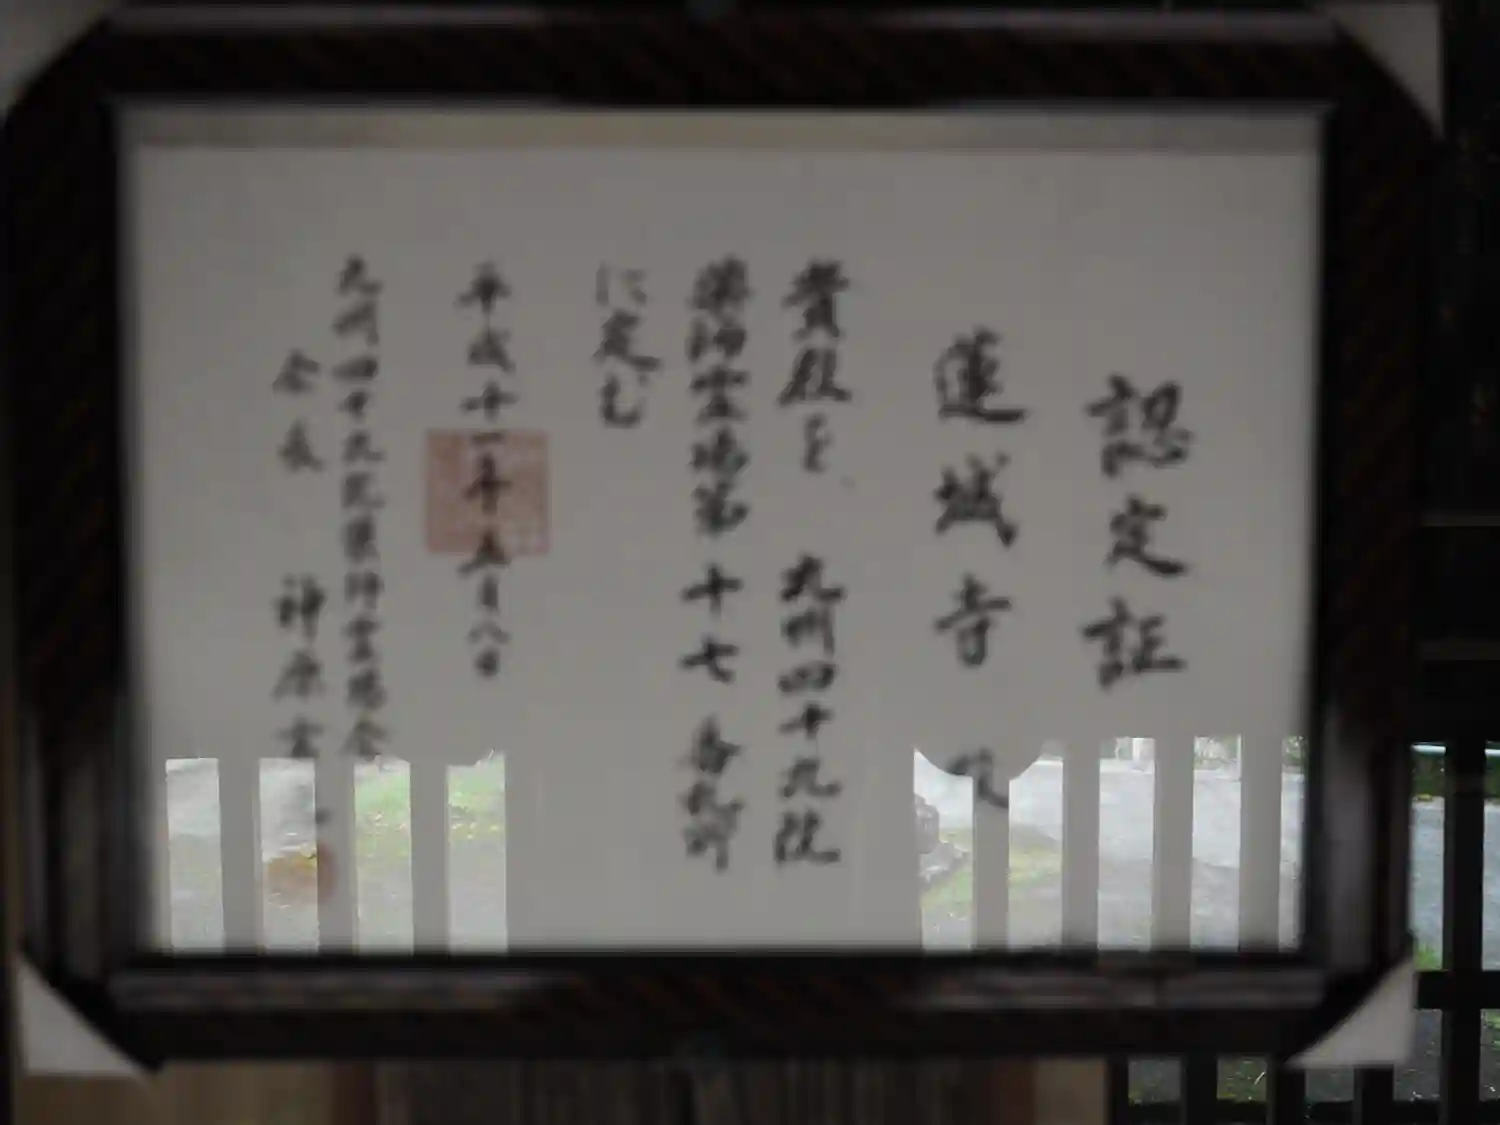 認定証
蓮城寺 殿
貴殿を 九州四十九院
薬師霊場第十七番札所
に定む
平成十一年五月八日
九州四十九院薬師霊場会
会長 神原玄